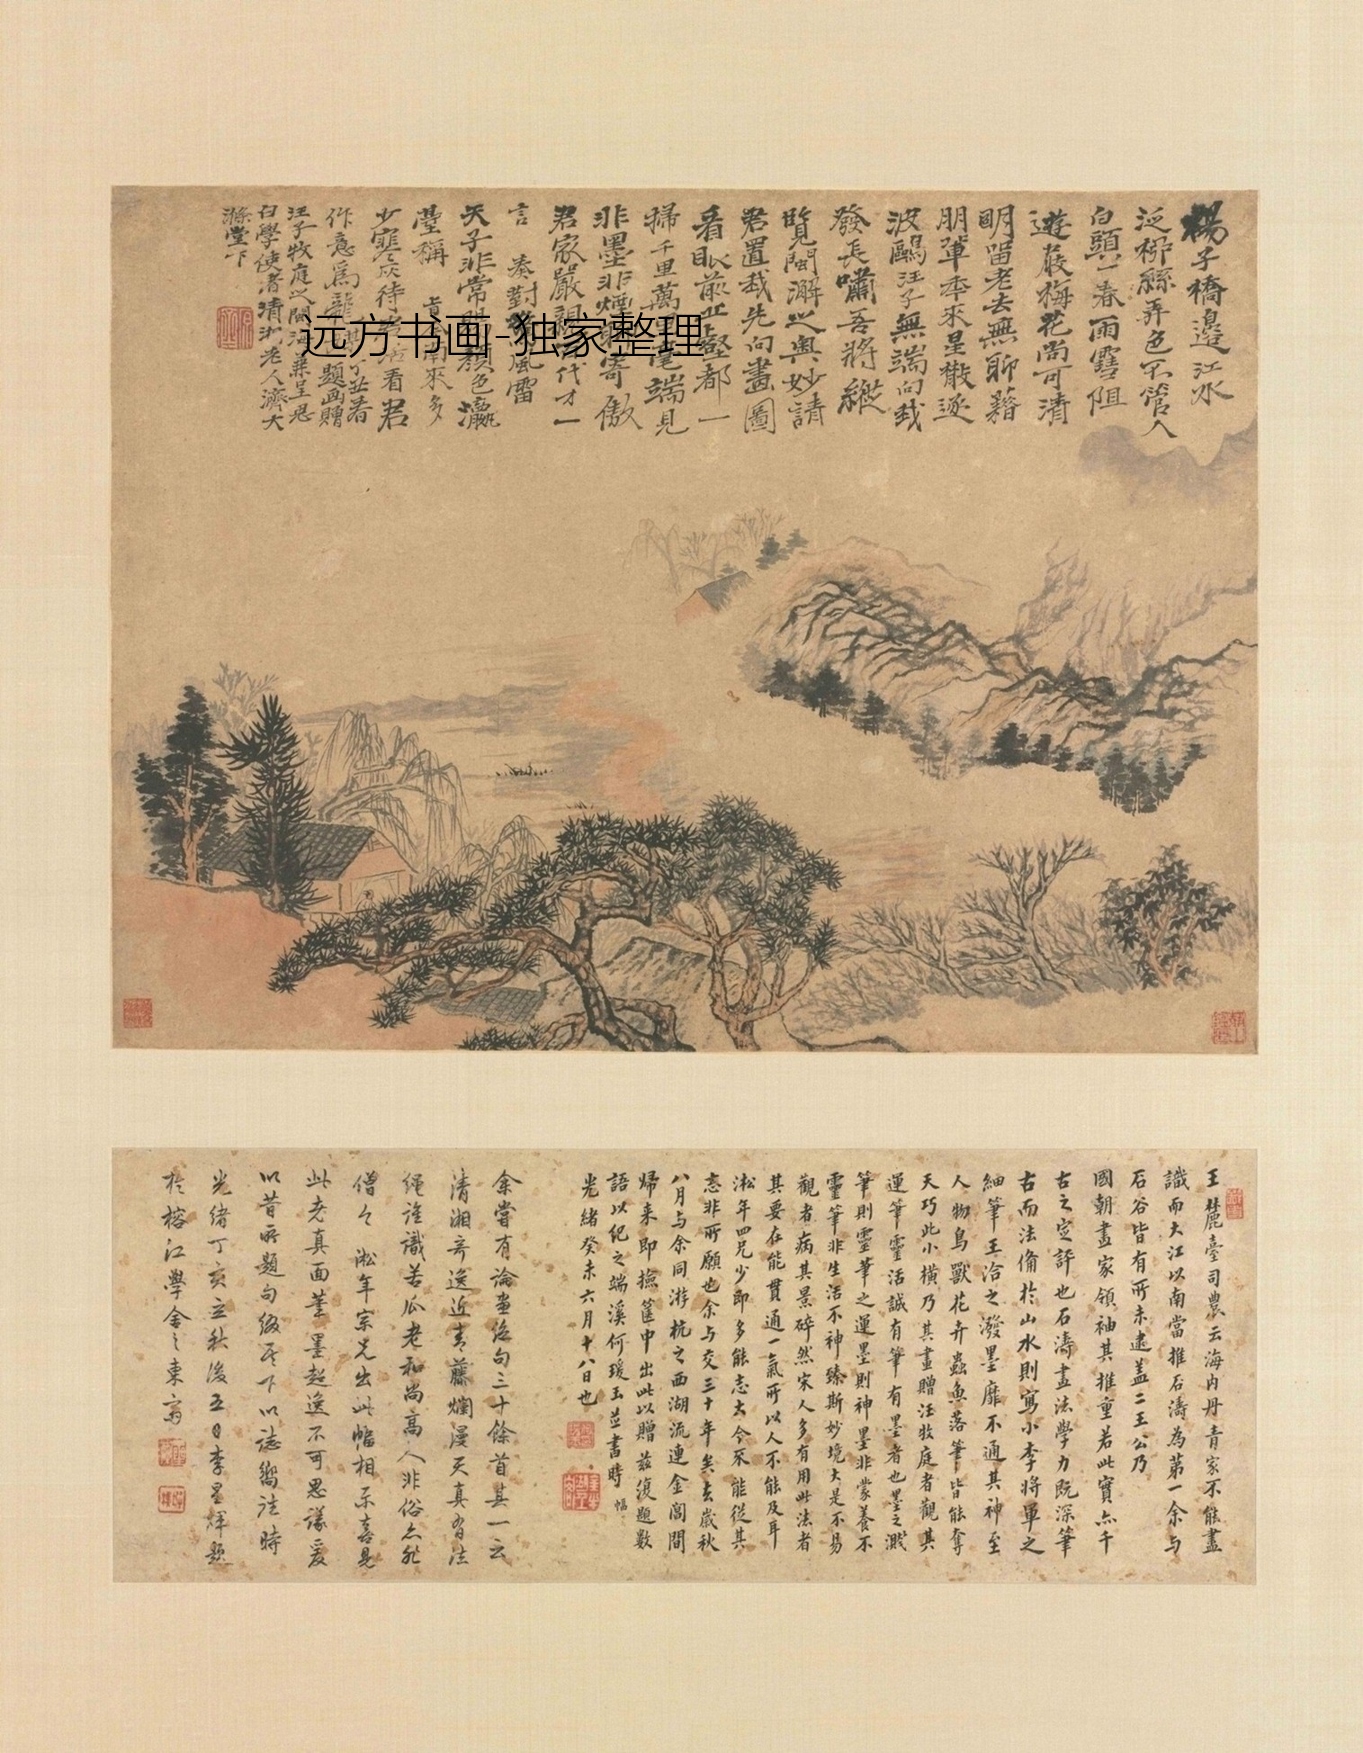 楊子橋邊江水
泛柳絲弄色不管人
白頭一春雨雪阻
遊嚴梅花尚可清
明留老去無聊藉
朋輩季來星散逐
波鷗汪子無端向我
發長嘯吾將縱
覽閩澥之奧妙請
君置我先向畫圖
看眼前丘壑都一
掃千里萬里毫端見
非墨非煙聊寄傲
君家嚴親一代才一
言奏對風雷
天子非常開顏色瀛
臺稱
南來多
少寒灰待君看君
作意為龍
題畫贈
汪子牧庭之閩海兼呈思
白學使者清湘老人濟大
滌堂下
远方书画-独家整理
王麓臺司農云海內丹青家不能盡
識而大江以南當推石濤為第一余與
石谷皆有所未逮蓋二王公乃
國朝畫家領袖其推重若此實亦千
古之定評也石濤畫法學力既深筆
古而法備於山水則寫小李將軍之
細筆王洽之潑墨靡不通其神至
人物鳥獸花卉蟲魚落筆皆能奪
天巧此小橫乃其畫贈汪牧庭者觀其
運筆靈活誠有筆有墨者也墨之濺
筆則靈筆之運墨則神墨非蒙養不
靈筆非生活不神臻斯妙境大是不易
觀者病其景碎然宋人多有用此法者
其要在能貫通一氣所以人不能及耳
淞年四兄少即多能志大今不能從其
志非所願也余與交三十年矣去歲秋
八月与余同游杭之西湖流連金閶間
歸来即撿篋中出此以贈茲復題數
語以纪之端溪何瑗玉並書時
光緒癸未六月十八日也
余嘗有論畫絕句三十餘首其一云
清湘奇逸近青藤爛漫天真有法
繩誰識苦瓜老和尚高人非俗亦非
僧今淞年宗兄出此幅相示喜見
此老真面筆墨超逸不可思議爰
以昔所題句綴於下以誌嚮往時
光緒丁亥立秋後五日李星輝題
於榕江學舍之東齋